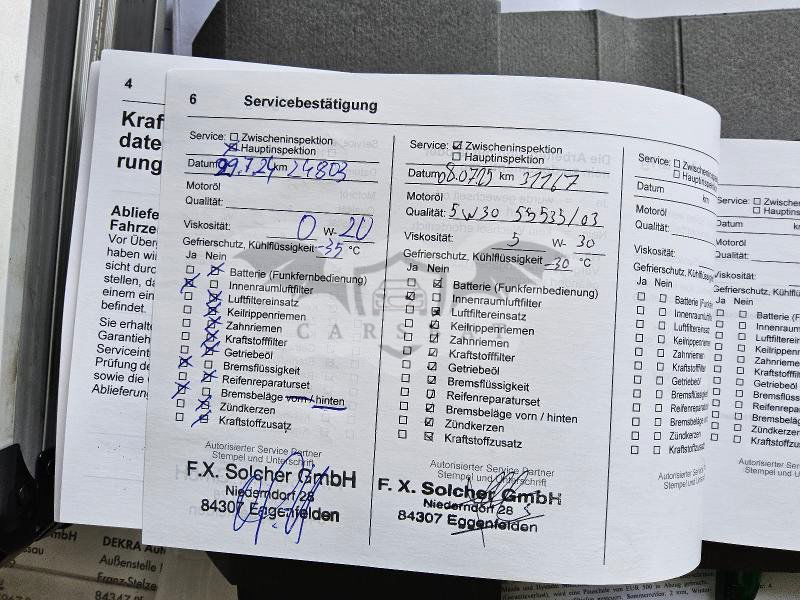 4
Kraf
date
rung
Abliefe
Fahrze
Vor Über
haben wi
sicht durc
stellen, da
einem ein
befindet.
Sie erhalte
Garantieh
Serviceint
Prüfung de
sowie die
Ablieferung
6 Servicebestätigung
Service: Zwischeninspektion
Hauptinspektion
Datum 29.7.24 km 24803
Motoröl
Qualität:
Viskosität: 0 W- 20
Gefrierschutz, Kühlflüssigkeit -35 °C
Ja Nein
Batterie (Funkfernbedienung)
Innenraumluftfilter
Luftfiltereinsatz
Keilrippenriemen
Zahnriemen
Kraftstofffilter
Getriebeöl
Bremsflüssigkeit
Reifenreparaturset
Bremsbeläge vorn / hinten
Zündkerzen
Kraftstoffzusatz
Autorisierter Service Partner
Stempel und Unterschrift
F.X. Solcher GmbH
Niederndorf 28
84307 Eggenfelden
Service: Zwischeninspektion
Hauptinspektion
Datum 08.07.25 km 31167
Motoröl
Qualität: 5W30
Viskosität: 5 W- 30
Gefrierschutz, Kühlflüssigkeit -30 °C
Ja Nein
Batterie (Funkfernbedienung)
Innenraumluftfilter
Luftfiltereinsatz
Keilrippenriemen
Zahnriemen
Kraftstofffilter
Getriebeöl
Bremsflüssigkeit
Reifenreparaturset
Bremsbeläge vorn / hinten
Zündkerzen
Kraftstoffzusatz
Autorisierter Service Partner
Stempel und Unterschrift
F. X. Solcher GmbH
Niederndorf 28
84307 Eggenfelden
Service: Zwischeninspektion
Hauptinspektion
Datum km
Motoröl
Qualität:
Viskosität:
Gefrierschutz, Kühlflüssig
Ja Nein
Batterie (Funk
Innenraumluft
Luftfiltereins
Keilrippenrie
Zahnriemen
Kraftstofffilter
Getriebeöl
Bremsflüssig
Reifenrepara
Bremsbeläge
Zündkerzen
Kraftstoffzus
Autorisierter Se
Stempel und
Service: Zwischeninspe
Hauptinspektion
Datum
Motoröl
Qualität:
Viskosität:
Gefrierschutz, Kühlflüss
Ja Nein
Batterie (F
Innenrauml
Luftfilterein
Keilrippenr
Zahnrieme
Kraftstofffil
Getriebeöl
Bremsflüss
Reifenrepa
Bremsbelä
Zündkerze
Kraftstoffzu
Autorisierter
Stempel u
DEKRA Aut
Außenstelle
Franz-Stelze
84347